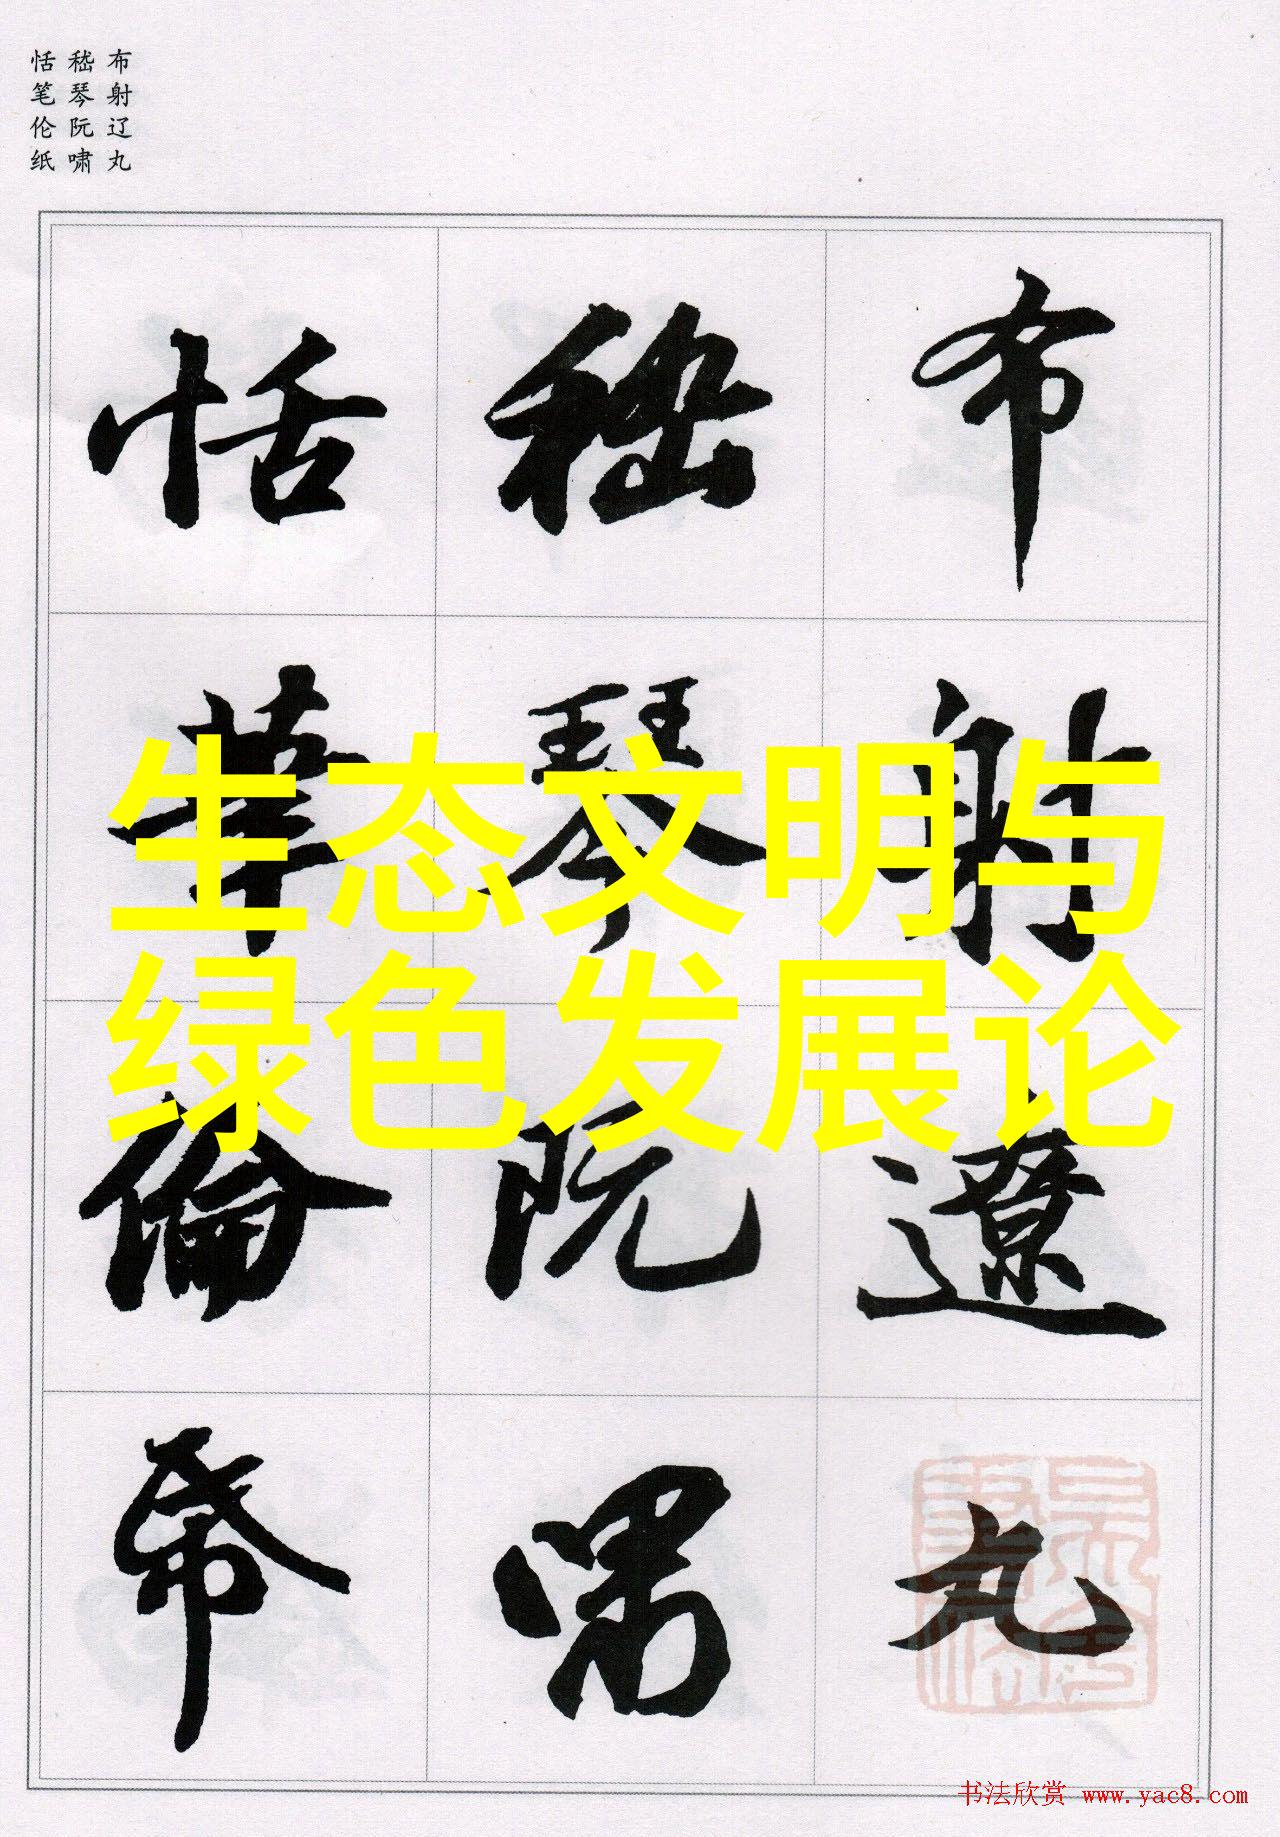 布射辽丸
嵇琴阮啸
恬笔伦纸
布射遼丸
嵇琴阮嘯
恬筆倫帋
生态文明与
绿色发展论
书法欣赏 www.yac8.com